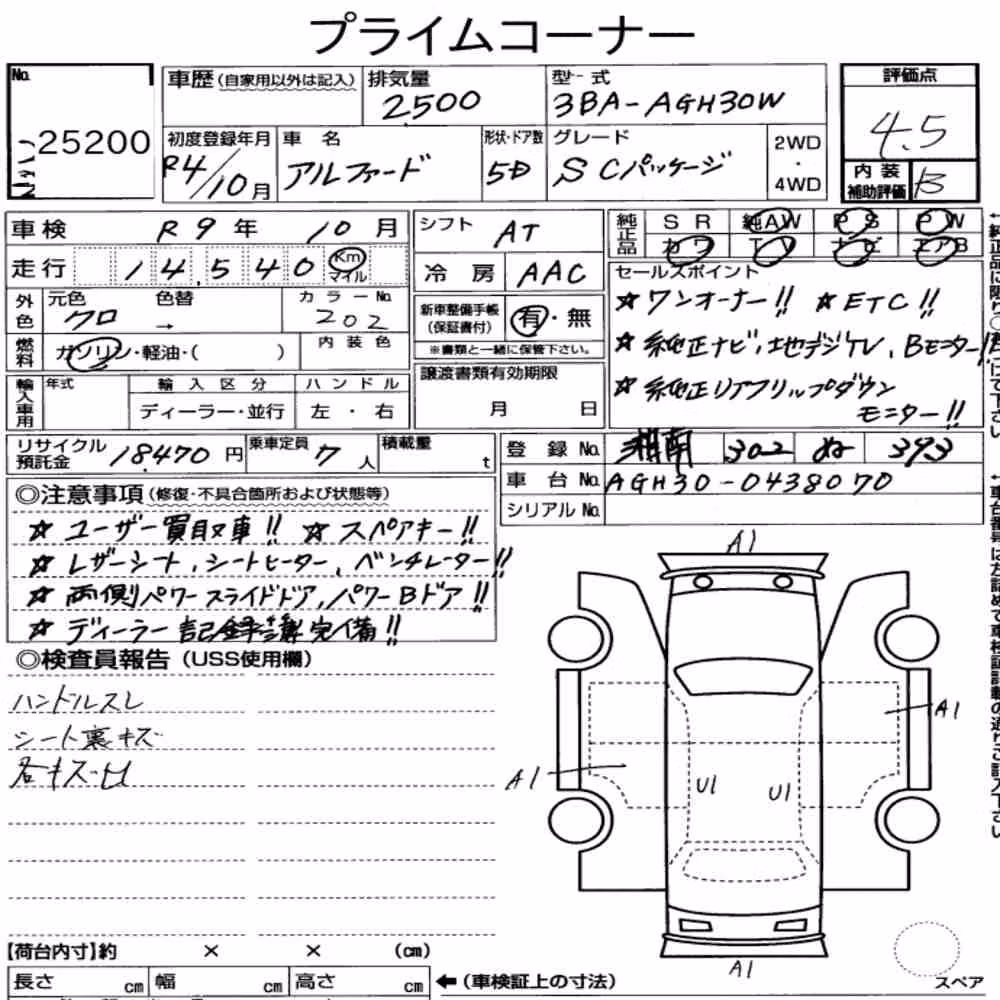 プライムコーナー
No. 25200
車歴(自家用以外は記入) 排気量 2500 型式 3BA-AGH30W
評価点 4.5
初度登録年月 R4/10月 車名 アルファード 形状・ドア数 5D グレード SCパッケージ 2WD・4WD
内装補助評価 B
車検 R9年 10月 シフト AT
純正品 SR 純AW PS PW
カワ TV ナビ エアB
走行 14,540 Km マイル 冷房 AAC
セールスポイント
☆ワンオーナー!! ☆ETC!!
外色 元色 クロ 色替 → カラーNo. 202
新車整備手帳(保証書付) 有・無
※書類と一緒に保管下さい。
☆純正ナビ,地デジTV、Bモニター!!
燃料 ガソリン・軽油・( ) 内装色
☆純正リアフリップダウン
モニター!!
輸入車用 年式 輸入区分 ハンドル
ディーラー・並行 左・右
譲渡書類有効期限
月 日
リサイクル預託金 18,470円 乗車定員 7人 積載量 t
登録No. 湘南 302 ぬ 393
車台No. AGH30-0438070
シリアルNo.
◎注意事項(修復・不具合箇所および状態等)
☆ユーザー買取車!! ☆スペアキー!!
☆レザーシート,シートヒーター,ベンチレーター!!
☆両側パワースライドドア,パワーBドア!!
☆ディーラー記録簿完備!!
◎検査員報告(USS使用欄)
ハンドルスレ
シート裏キズ
各キズ・凹
A1
A1
A1
U1 U1
A1
【荷台内寸】約 × × (cm)
長さ cm 幅 cm 高さ cm ←(車検証上の寸法)
スペア